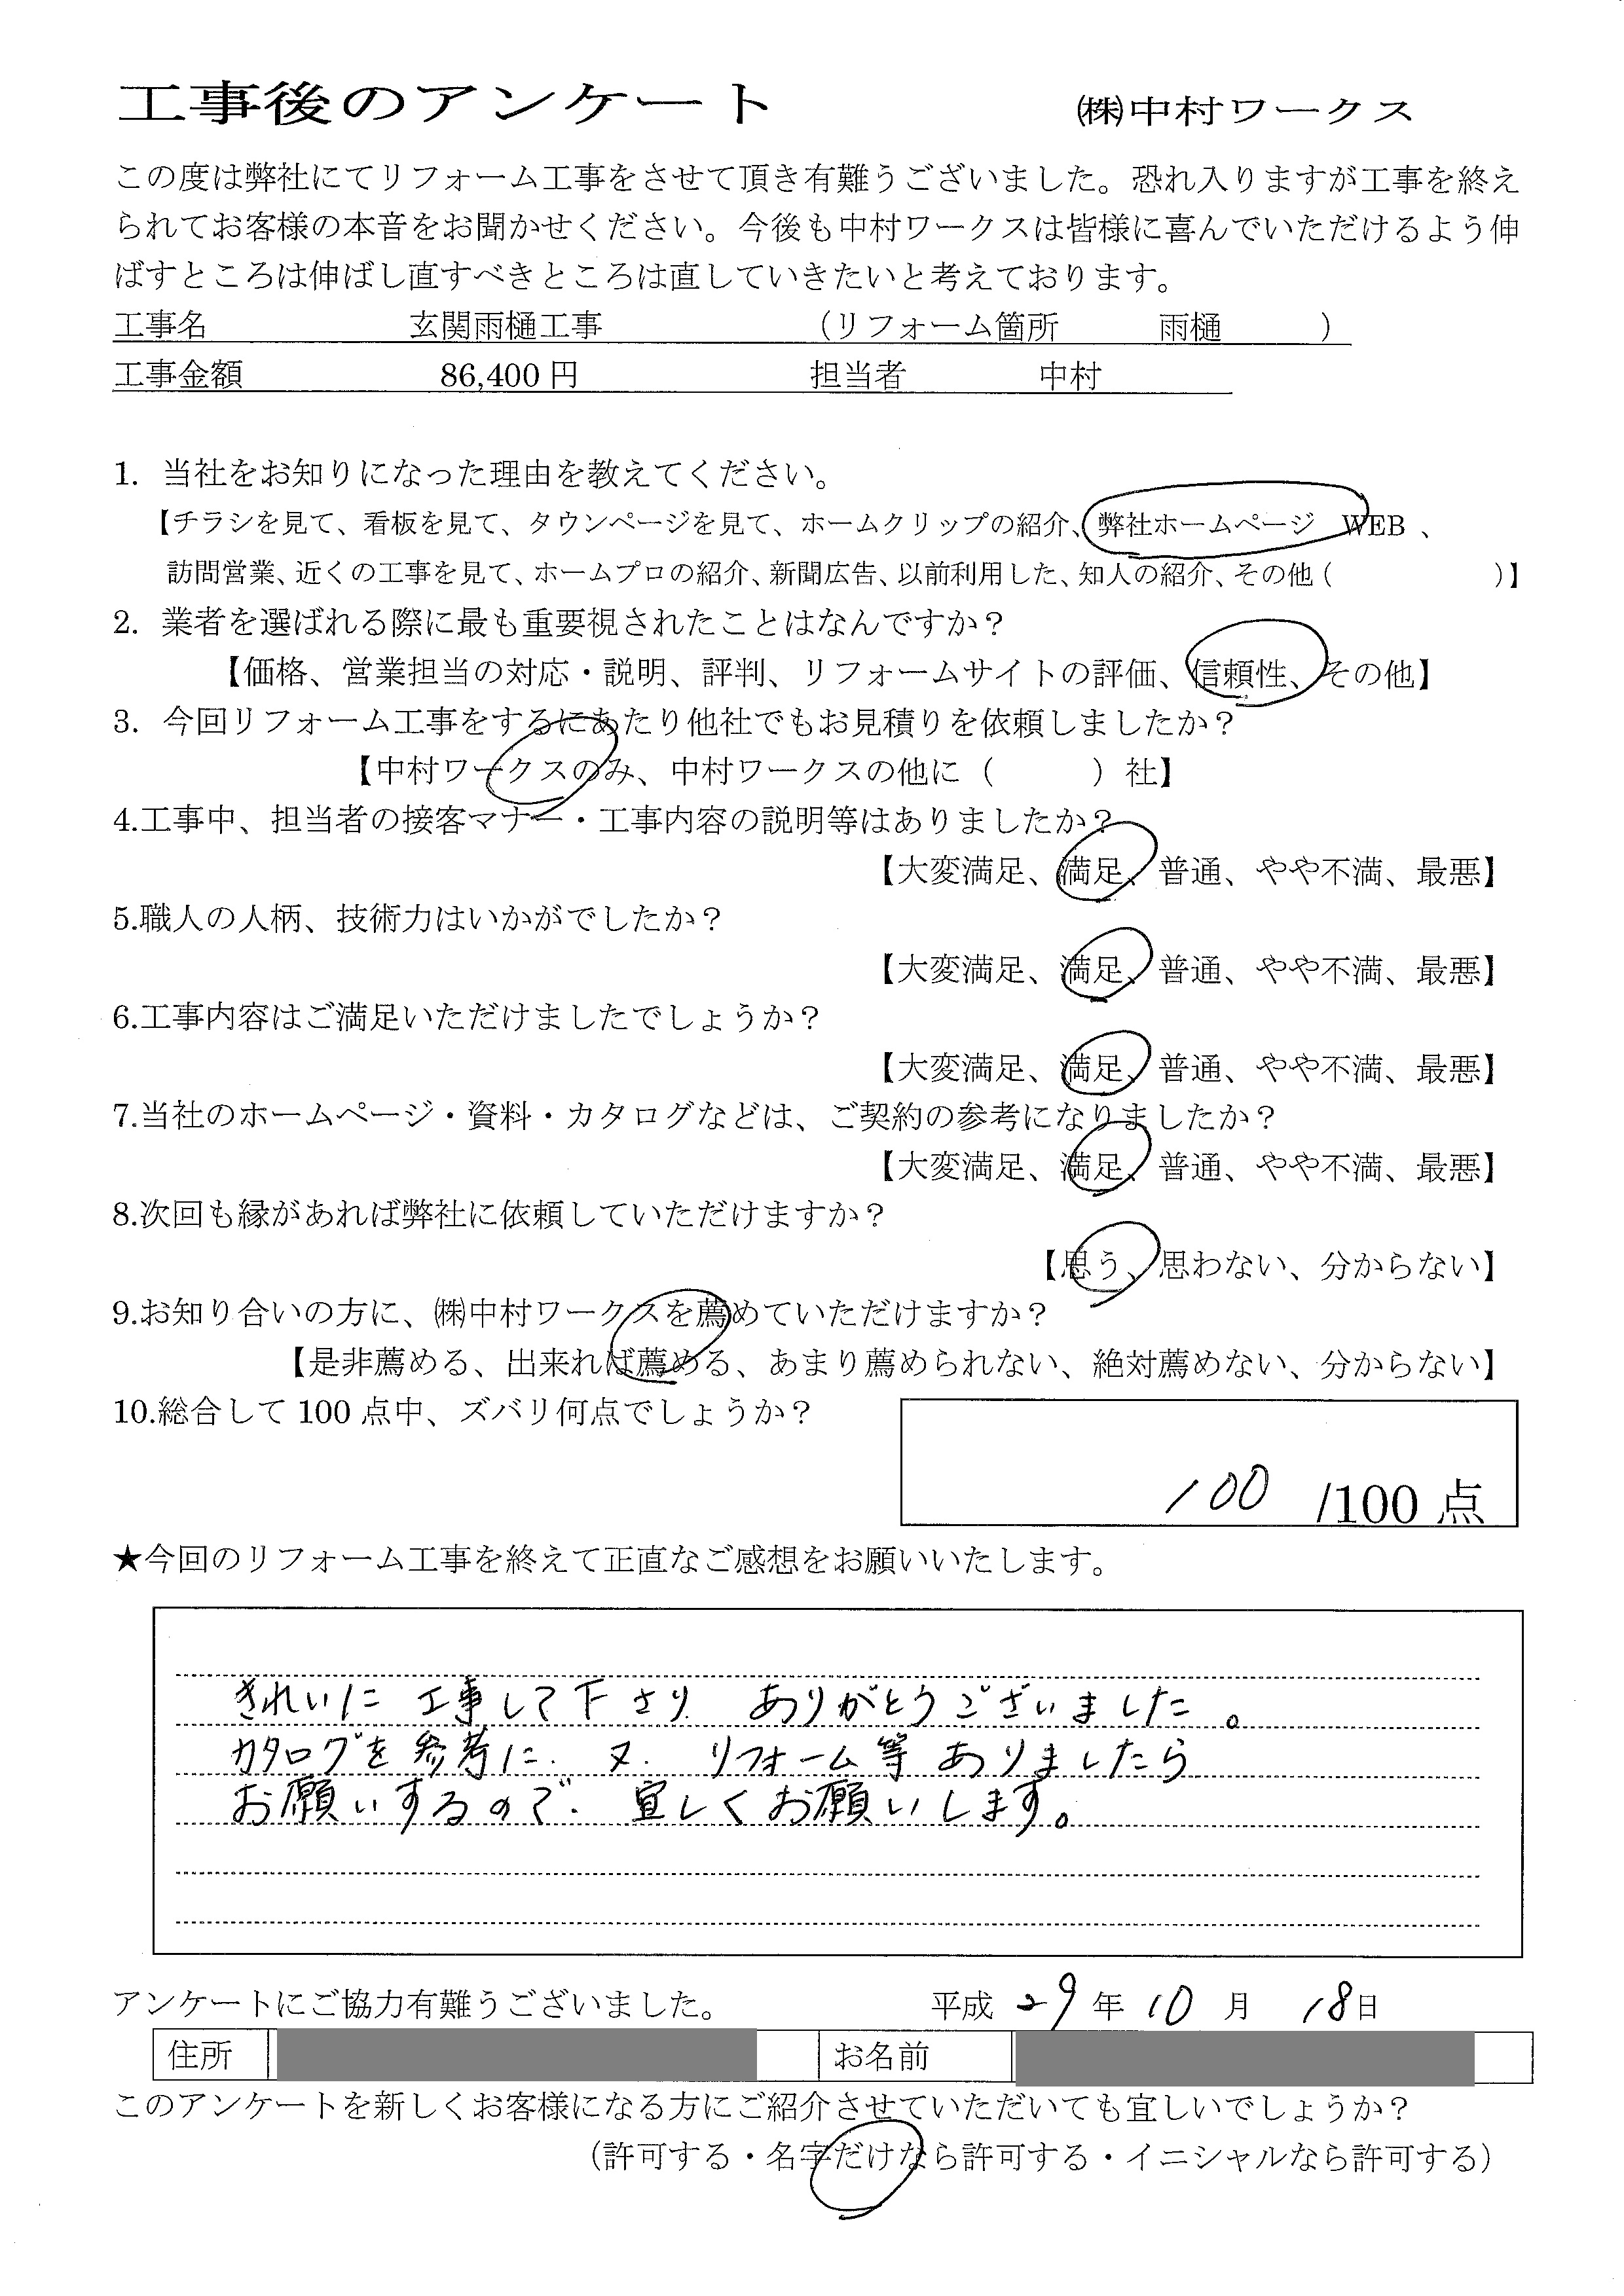 工事後のアンケート　㈱中村ワークス
この度は弊社にてリフォーム工事をさせて頂き有難うございました。恐れ入りますが工事を終え
られてお客様の本音をお聞かせください。今後も中村ワークスは皆様に喜んでいただけるよう伸
ばすところは伸ばし直すべきところは直していきたいと考えております。
工事名　玄関雨樋工事　（リフォーム箇所　雨樋　）
工事金額　86,400 円　担当者　中村
1. 当社をお知りになった理由を教えてください。
【チラシを見て、看板を見て、タウンページを見て、ホームクリップの紹介、弊社ホームページ　WEB 、
訪問営業、近くの工事を見て、ホームプロの紹介、新聞広告、以前利用した、知人の紹介、その他（　　　）】
2. 業者を選ばれる際に最も重要視されたことはなんですか？
【価格、営業担当の対応・説明、評判、リフォームサイトの評価、信頼性、その他】
3. 今回リフォーム工事をするにあたり他社でもお見積りを依頼しましたか？
【中村ワークスのみ、中村ワークスの他に（　　　）社】
4.工事中、担当者の接客マナー・工事内容の説明等はありましたか？
【大変満足、満足、普通、やや不満、最悪】
5.職人の人柄、技術力はいかがでしたか？
【大変満足、満足、普通、やや不満、最悪】
6.工事内容はご満足いただけましたでしょうか？
【大変満足、満足、普通、やや不満、最悪】
7.当社のホームページ・資料・カタログなどは、ご契約の参考になりましたか？
【大変満足、満足、普通、やや不満、最悪】
8.次回も縁があれば弊社に依頼していただけますか？
【思う、思わない、分からない】
9.お知り合いの方に、㈱中村ワークスを薦めていただけますか？
【是非薦める、出来れば薦める、あまり薦められない、絶対薦めない、分からない】
10.総合して 100 点中、ズバリ何点でしょうか？
100 /100 点
★今回のリフォーム工事を終えて正直なご感想をお願いいたします。
きれいに 工事して下さり ありがとうございました。
カタログを参考に、又、リフォーム等 ありましたら
お願いするので、宜しくお願いします。
アンケートにご協力有難うございました。　平成 29 年 10 月 18 日
住所　お名前
このアンケートを新しくお客様になる方にご紹介させていただいても宜しいでしょうか？
（許可する・名字だけなら許可する・イニシャルなら許可する）